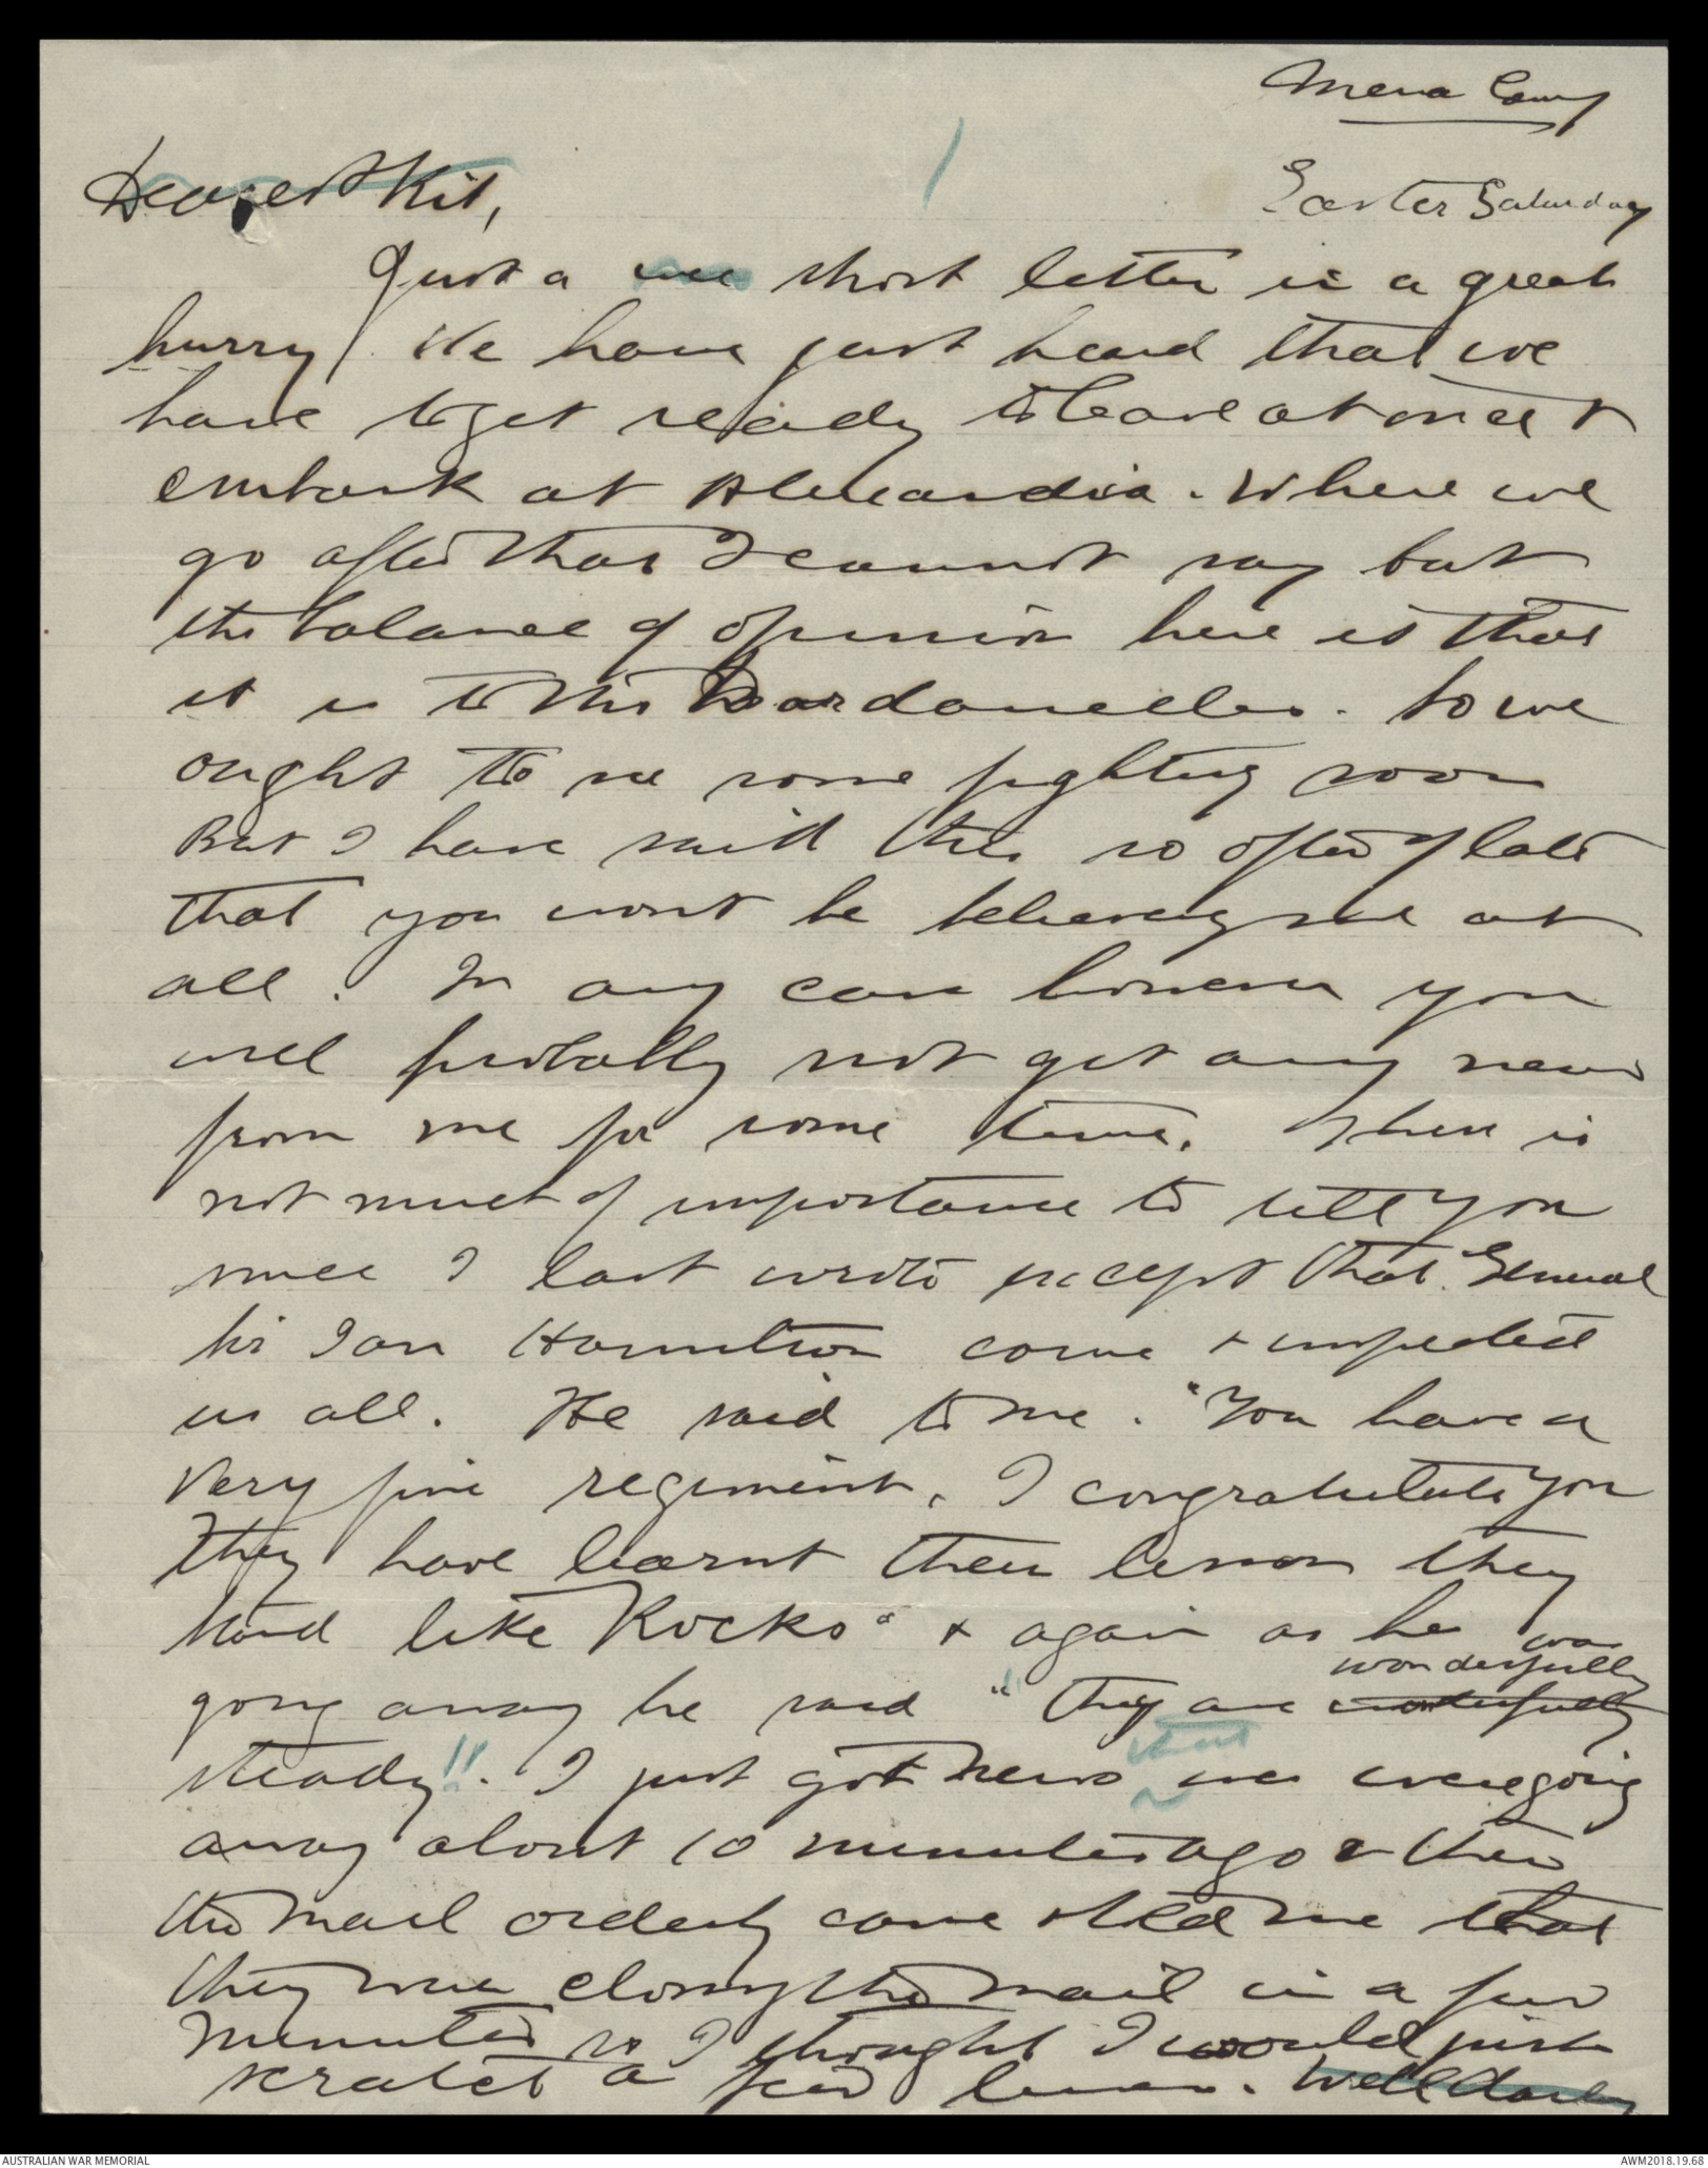 Mena Camp
Easter Saturday
Dearest Kit,
Just a wee short letter in a great
hurry. We have just heard that we
have to get ready to leave at once &
embark at Alexandria. Where we
go after that I cannot say but
the balance of opinion here is that
it is to the Dardanelles. So we
ought to see some fighting soon
But I have said this so often of late
that you wont be believing me at
all. In any case however you
will probably not get any news
from me for some time. There is
not much of importance to tell you
since I last wrote except that General
Sir Ian Hamilton came & inspected
us all. He said to me. "You have a
very fine regiment, I congratulate you
They have learnt their lesson they
stand like Rocks" & again as he was
going away he said "They are wonderfully wonderfully
steady!!. I just got news that we were going
away about 10 minutes ago & then
the mail orderly came & told me that
they were closing the mail in a few
minutes so I thought I would just
scratch a few lines. Well
AUSTRALIAN WAR MEMORIAL
AWM2018.19.68